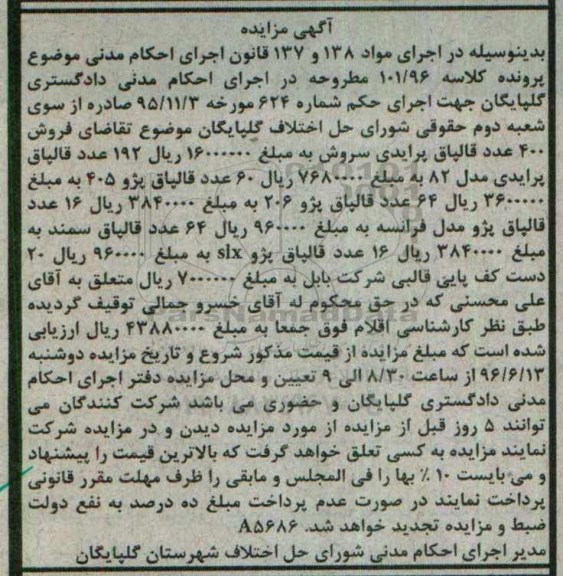 آگهی مزایده
بدینوسیله در اجرای مواد ۱۳۸ و ۱۳۷ قانون اجرای احکام مدنی موضوع
پرونده کلاسه ۱۰۱/۹۶ مطروحه در اجرای احکام مدنی دادگستری
گلپایگان جهت اجرای حکم شماره ۶۲۴ مورخه ۹۵/۱۱/۳ صادره از سوی
شعبه دوم حقوقی شورای حل اختلاف گلپایگان موضوع تقاضای فروش
۴۰۰ عدد قالپاق پرایدی سروش به مبلغ ۱۶۰۰۰۰۰۰ ریال ۱۹۲ عدد قالپاق
پرایدی مدل ۸۲ به مبلغ ۷۶۸۰۰۰۰ ریال ۶۰ عدد قالپاق پژو ۴۰۵ به مبلغ
۳۶۰۰۰۰۰ ریال ۶۴ عدد قالپاق پژو ۲۰۶ به مبلغ ۳۸۴۰۰۰۰ ریال ۱۶ عدد
قالپاق پژو مدل فرانسه به مبلغ ۹۶۰۰۰۰ ریال ۶۴ عدد قالپاق سمند به
مبلغ ۳۸۴۰۰۰۰ ریال ۱۶ عدد قالپاق پژو slx به مبلغ ۹۶۰۰۰۰ ریال ۲۰
دست کف پایی قالبی شرکت بابل به مبلغ ۷۰۰۰۰۰۰ ریال متعلق به آقای
علی محسنی که در حق محکوم له آقای خسرو جمالی توقیف گردیده
طبق نظر کارشناسی اقلام فوق جمعا به مبلغ ۴۳۸۸۰۰۰۰ ریال ارزیابی
شده است که مبلغ مزایده از قیمت مذکور شروع و تاریخ مزایده دوشنبه
۹۶/۶/۱۳ از ساعت ۸/۳۰ الی ۹ تعیین و محل مزایده دفتر اجرای احکام
مدنی دادگستری گلپایگان و حضوری می باشد شرکت کنندگان می
توانند ۵ روز قبل از مزایده از مورد مزایده دیدن و در مزایده شرکت
نمایند مزایده به کسی تعلق خواهد گرفت که بالاترین قیمت را پیشنهاد
و می بایست ۱۰ ٪ بها را فی المجلس و مابقی را ظرف مهلت مقرر قانونی
پرداخت نمایند در صورت عدم پرداخت مبلغ ده درصد به نفع دولت
ضبط و مزایده تجدید خواهد شد. A۵۶۸۶
مدیر اجرای احکام مدنی شورای حل اختلاف شهرستان گلپایگان